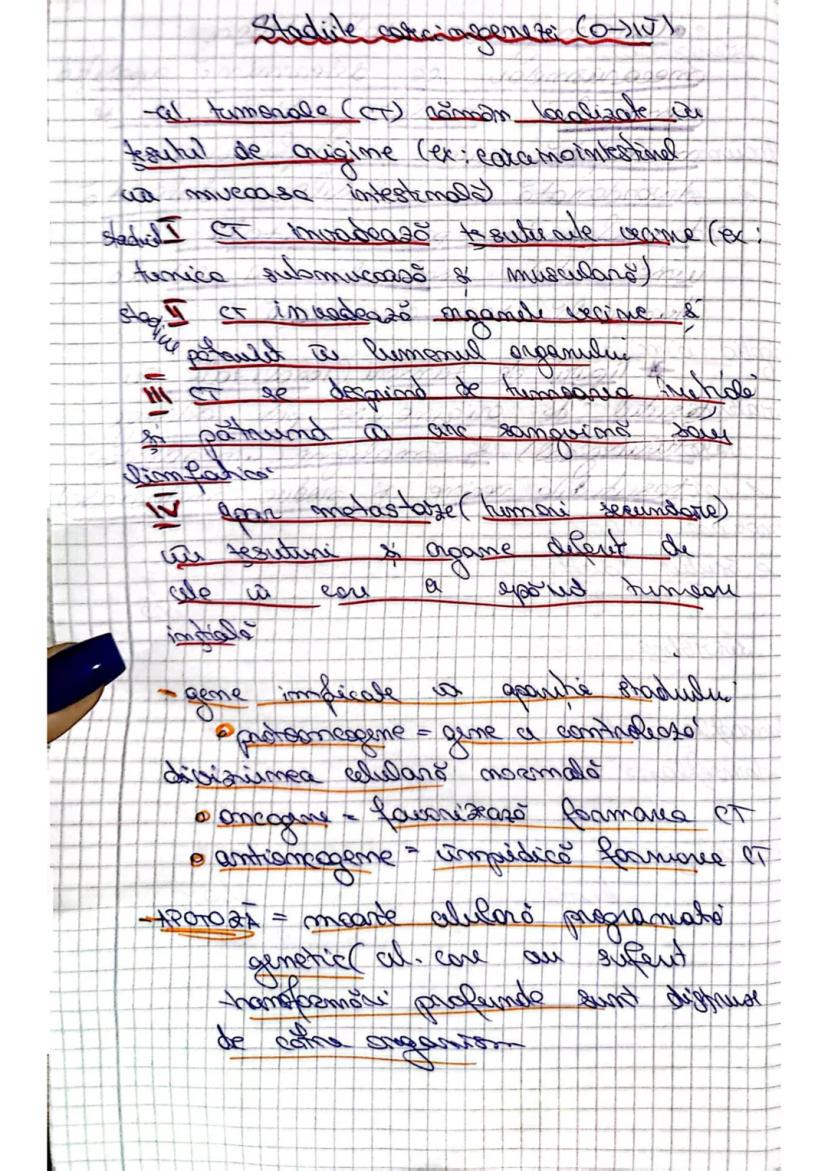 Stadiile carcinogenezei (0→IV)
-cel. tumorale (CT) rămân localizate în
țesutul de origine (ex: carcinointestinal
în mucoasa intestinală)
stadiul I CT invadează țesuturile vecine (ex:
tunica submucoasă și musculară)
stadiul II CT invadează organele vecine și
pătrund în lumenul organului
III CT se desprind de tumoarea inițială
și pătrund în circ. sangvină sau
limfatică
IV apar metastaze (tumori secundare)
în țesuturi și organe diferit de
cele în care a apărut tumoare
inițială
- gene implicate în apariția stadiului
protooncogene = gene ce controlează
diviziunea celulară normală
oncogene = favorizează formarea CT
antioncogene = împiedică formarea CT
-APOTOZĂ = moarte celulară programată
genetic (cel. care au suferit
transformări profunde sunt distruse
de către organism